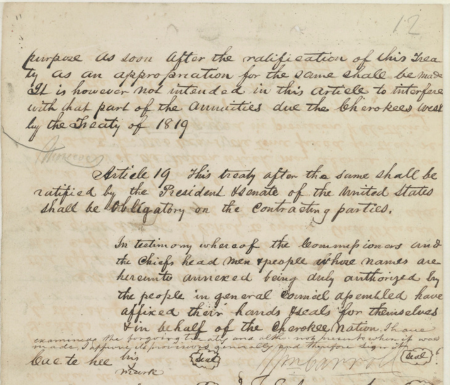 12
purpose as soon after the ratification of this Trea
ty as an appropriation for the same shall be made
It is however not intended in this Article to interfere
with that part of the annuities due the Cherokees West
by the Treaty of 1819
Article 19 This treaty after the same shall be
ratified by the President & Senate of the United States
shall be Obligatory on the Contracting parties.
In testimony whereof the Commissioners and
the Chiefs head men & people whose names are
hereunto annexed being duly authorized by
the people in general Council assembled have
affixed their hands & seals for themselves
& in behalf of the Cherokee Nation. I have
examined the foregoing treaty and altho not present when it was
made, I approve its provisions generally and therefore sign it
Cae te hee his seal seal
mark